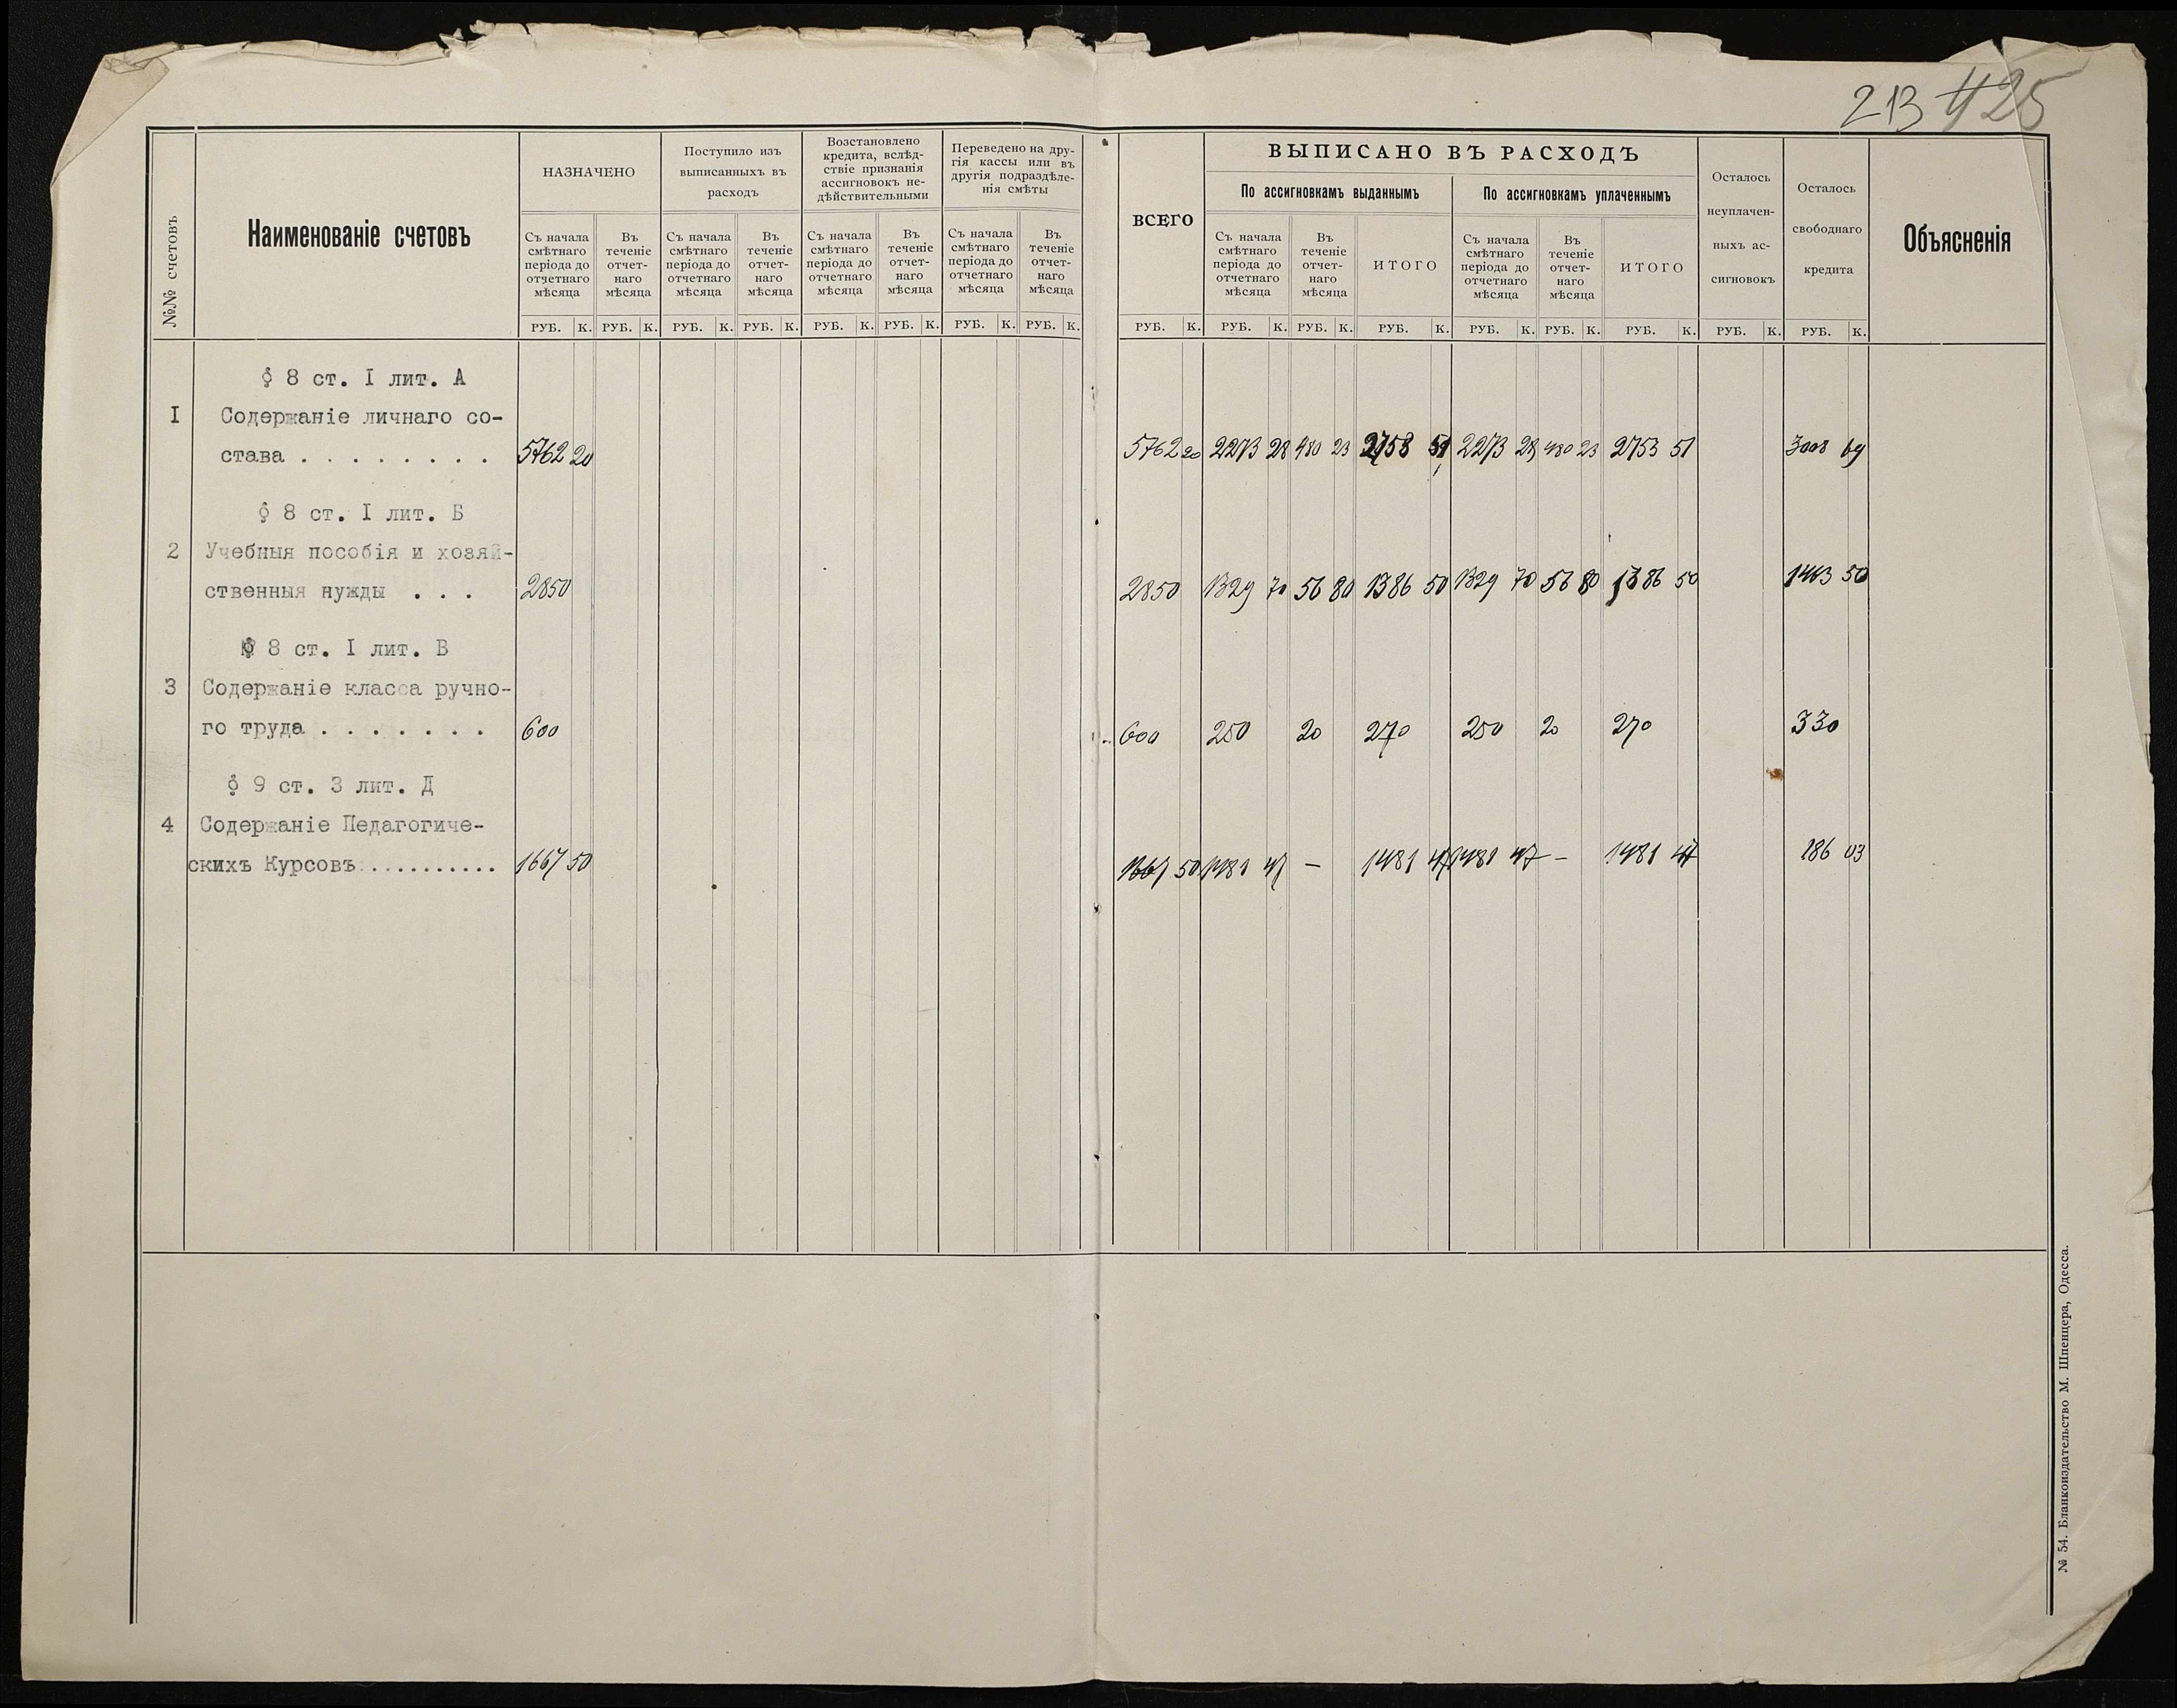 213 425
№№ счетовъ
Наименованіе счетовъ
НАЗНАЧЕНО
Поступило изъ
выписанныхъ въ
расходъ
Возстановлено
кредита, вслѣд-
ствіе признанія
ассигновокъ не-
дѣйствительными
Переведено на дру-
гія кассы или въ
другія подраздѣле-
нія смѣты
ВСЕГО
ВЫПИСАНО ВЪ РАСХОДЪ
По ассигновкамъ выданнымъ
По ассигновкамъ уплаченнымъ
Осталось
неуплачен-
ныхъ ас-
сигновокъ
Осталось
свободнаго
кредита
Объясненія
Съ начала
смѣтнаго
періода до
отчетнаго
мѣсяца
Въ
теченіе
отчет-
наго
мѣсяца
Съ начала
смѣтнаго
періода до
отчетнаго
мѣсяца
Въ
теченіе
отчет-
наго
мѣсяца
Съ начала
смѣтнаго
періода до
отчетнаго
мѣсяца
Въ
теченіе
отчет-
наго
мѣсяца
Съ начала
смѣтнаго
періода до
отчетнаго
мѣсяца
Въ
теченіе
отчет-
наго
мѣсяца
Съ начала
смѣтнаго
періода до
отчетнаго
мѣсяца
Въ
теченіе
отчет-
наго
мѣсяца
ИТОГО
Съ начала
смѣтнаго
періода до
отчетнаго
мѣсяца
Въ
теченіе
отчет-
наго
мѣсяца
ИТОГО
РУБ. К. РУБ. К. РУБ. К. РУБ. К. РУБ. К. РУБ. К. РУБ. К. РУБ. К. РУБ. К. РУБ. К. РУБ. К. РУБ. К. РУБ. К. РУБ. К. РУБ. К. РУБ. К. РУБ. К.
§ 8 ст. I лит. А
I Содержаніе личнаго со-
става . . . . . . . . 5762 20 5762 20 2273 28 480 23 2753 51 2273 28 480 23 2753 51 3008 69
§ 8 ст. I лит. Б
2 Учебныя пособія и хозяй-
ственныя нужды . . . 2850 2850 1329 70 56 80 1386 50 1329 70 56 80 1386 50 1463 50
§ 8 ст. I лит. В
3 Содержаніе класса ручно-
го труда . . . . . . . 600 600 250 20 270 250 20 270 330
§ 9 ст. 3 лит. Д
4 Содержаніе Педагогиче-
скихъ Курсовъ........... 1667 50 1667 50 1481 47 — 1481 47 1481 47 — 1481 47 186 03
№ 54. Бланкоиздательство М. Шпенцера, Одесса.